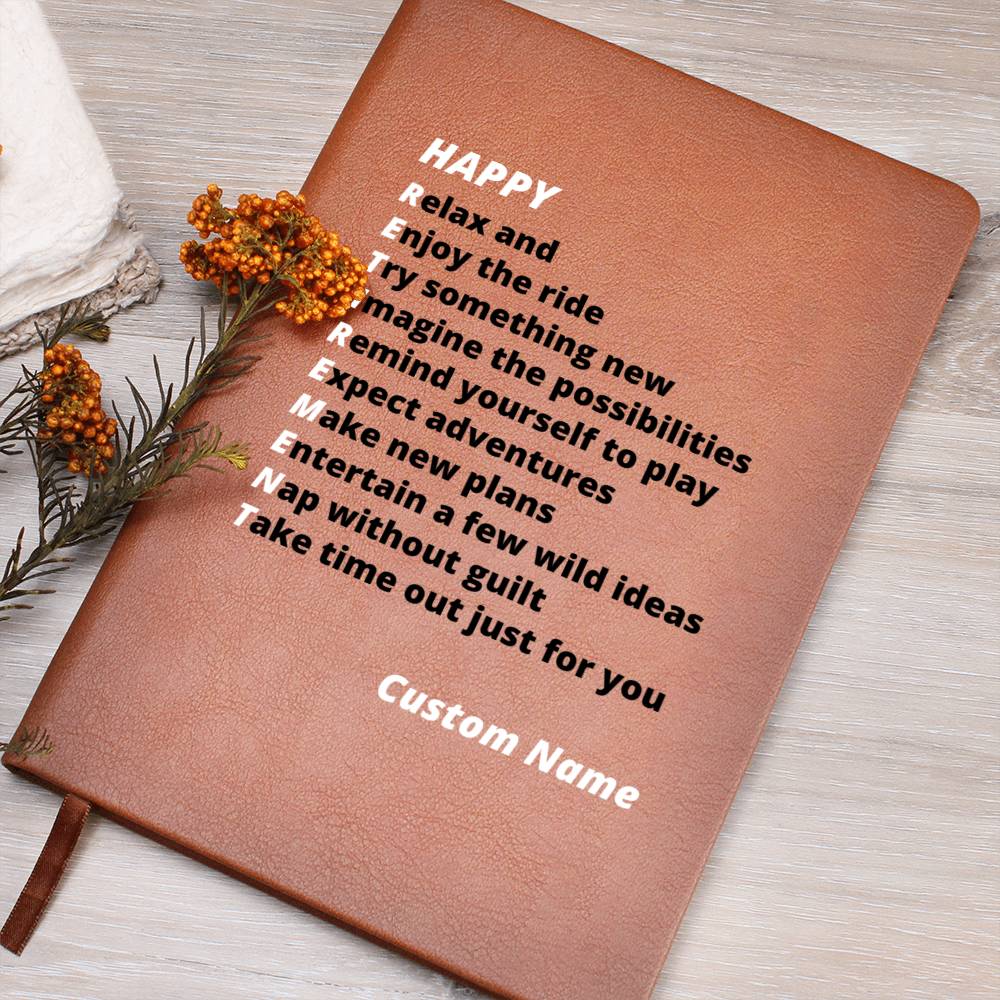 HAPPY
Relax and
Enjoy the ride
Try something new
Imagine the possibilities
Remind yourself to play
Expect adventures
Make new plans
Entertain a few wild ideas
Nap without guilt
Take time out just for you
Custom Name